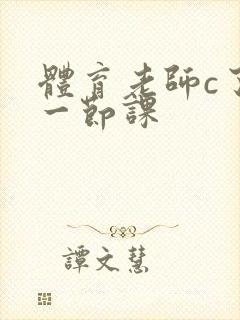 體育老師c了
一節課
譚文慧